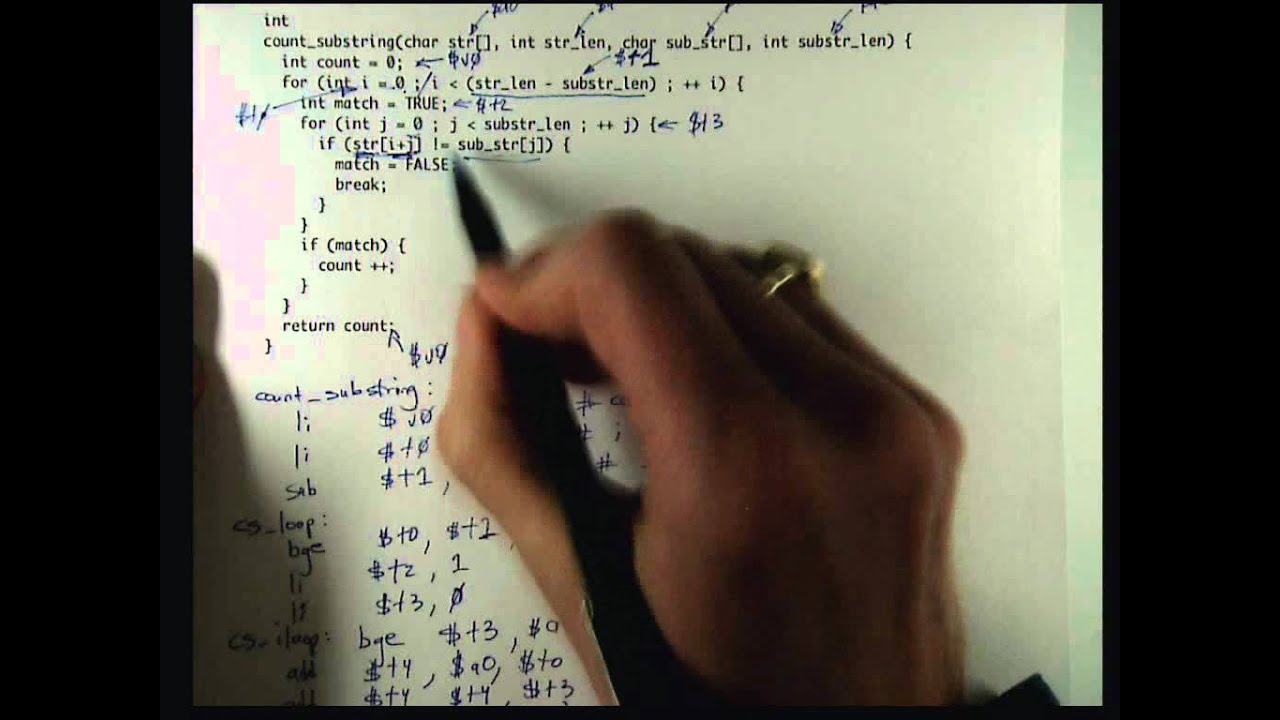 int
count_substring(char str[], int str_len, char sub_str[], int substr_len) {
int count = 0; $v0 $t1
for (int i = 0 ; i < (str_len - substr_len) ; ++ i) {
int match = TRUE; $t2
$t0
for (int j = 0 ; j < substr_len ; ++ j) { $t3
if (str[i+j] != sub_str[j]) {
match = FALSE
break;
}
}
if (match) {
count ++;
}
}
return count;
}
$v0
count_substring:
li $v0 #
li $t0 # ;
sub $t1, #
cs_loop:
bge $t0, $t1
li $t2, 1
li $t3, 0
cs_iloop: bge $t3, $a
add $t4, $a0, $t0
add $t4, $t4, $t3